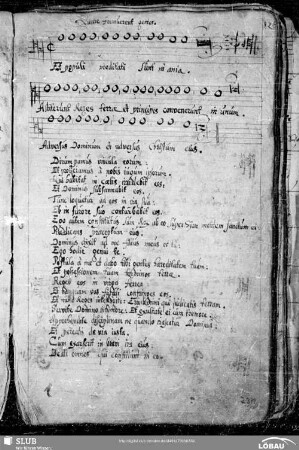 Quare fremuerunt gentes
Et populi meditati sunt inania.
Astiterunt Reges terrae et principes convenerunt in unum.
Adversus Dominum et adversus Christum eius.
Dirumpamus vincula eorum
Et projiciamus a nobis jugum ipsorum.
Qui habitat in caelis irridebit eos
Et Dominus subsannabit eos.
Tunc loquetur ad eos in ira sua
Et in furore suo conturbabit eos.
Ego autem constitutus sum Rex ab eo super Sion montem sanctum eius
Praedicans praeceptum eius.
Dominus dixit ad me filius meus es tu
Ego hodie genui te.
Postula a me et dabo tibi gentes haereditatem tuam
Et possessionem tuam terminos terrae.
Reges eos in virga ferrea
Et tanquam vas figuli confringes eos.
Et nunc Reges intelligite: Erudimini qui judicatis terram.
Servite Domino in timore: Et exultate ei cum tremore.
Apprehendite disciplinam ne quando irascatur Dominus
Et pereatis de via justa.
Cum exarserit in brevi ira eius
Beati omnes qui confidunt in eo.
SLUB
LÖBAU